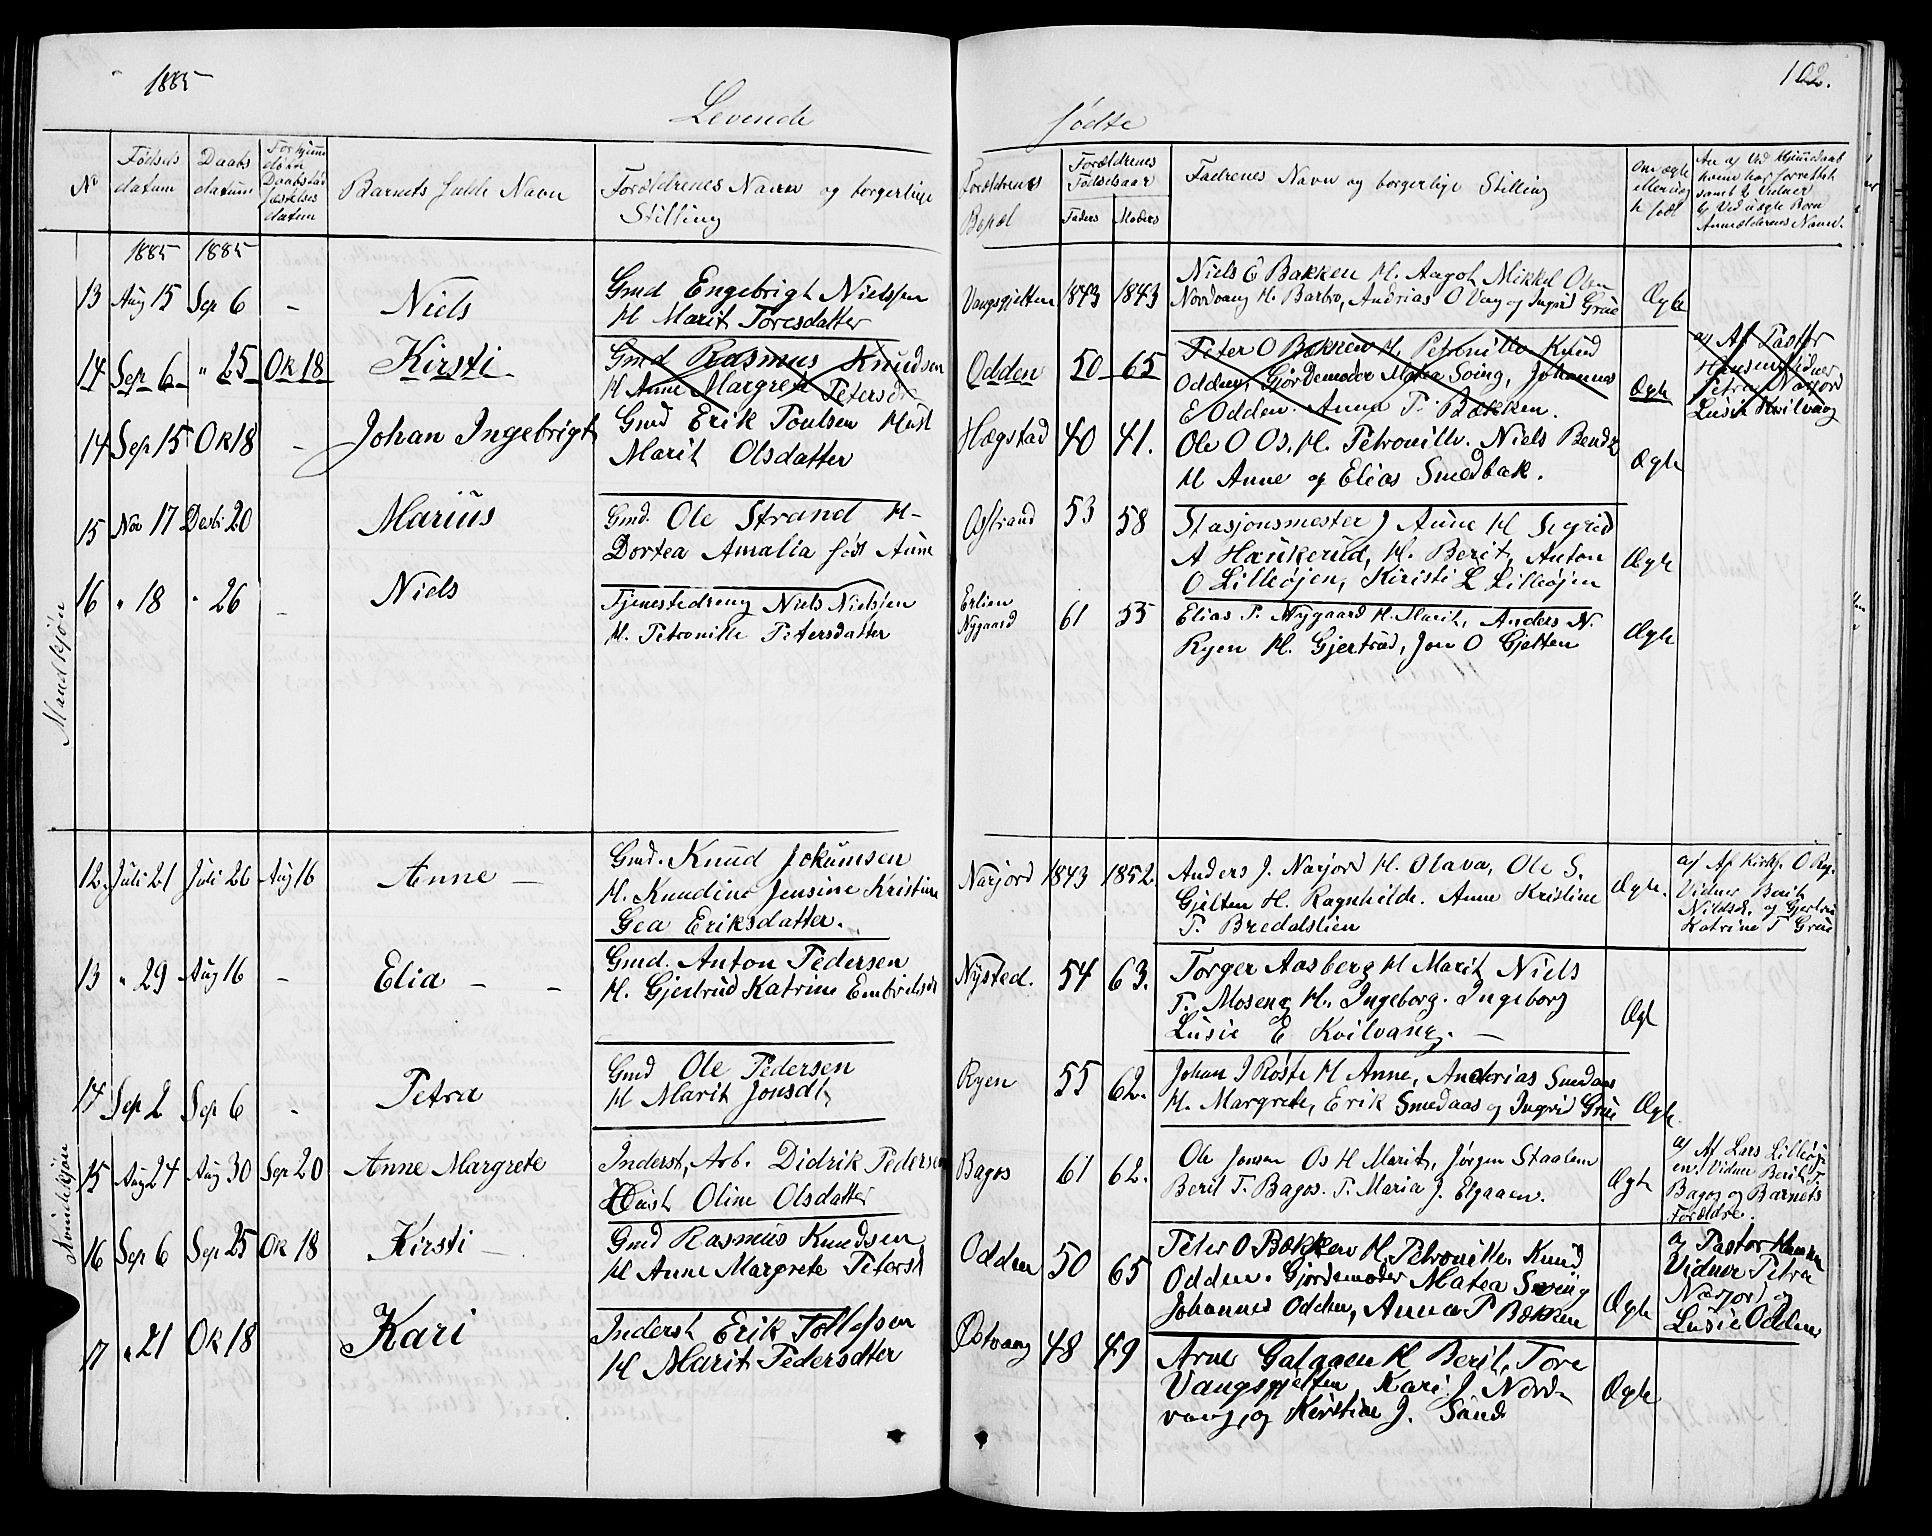 1885
102.
Levende
fødte
No
Fødsels datum
Daabs datum
For hjemmedøbte Daabstadfæstelses datum
Barnets fulde Navn
Forældrenes Navn og borgerlige Stilling
Forældrenes Bopæl
Forældrenes Fødselsaar
Faders Moders
Fadrenes Navn og borgerlige Stilling
Om ægte eller uægte født
Mandkjøn
1885 1885
13 Aug 15 Sep 6 - Niels
Gmd Engebrigt Nielssen
H Marit Toresdatter
Vangsgjelten 1843 1843
Niels E Bakken H. Aagot, Mikkel Olsn
Nordvang H. Barbro, Andrias O Vang og Ingrid Grue
Ægte
14 Sep 6 " 25 Ok 18 Kirsti
Gmd Rasmus Knudsen
H Anne Margrete Petersdt
Odden 50 65
Peter O Bækken H. Petronille Knud
Odden, Gjordemoder Matea Soing, Johannes
E Odden. Anna P. Bækken.
Ægte
a) Af Pastor
Hansen Vidner
Petra Narjord
Lusie Kvilvang
14 Sep 15 Ok 18 - Johan Ingebrigt
Gmd Erik Poulsen Hust
Marit Olsdatter
Hægstad 40 41.
Ole O Os. H. Petronille. Niels Bendz
H Anne og Elias Smedbak.
Ægte
15 Nov 17 Desbr 20 Marius
Gmd. Ole Strand H-
Dortea Amalia født Aune
Osstrand 53 58
Stasjonsmester J Aune H Sigrid
A Haukerud, H. Berit, Anton
O Lilleøjen, Kiristi L Lilleøjen
Ægte
16 " 18 " 26 - Niels
Tjenestedreng Niels Nielsen
H. Petronille Petersdatter
Erlien
Nygaard
61 55
Elias P. Nygaard H. Marit, Anders N.
Ryen H. Gjertrud, Jon O Gjelten
Ægte
Kvindekjøn
12. Juli 21 Juli 26 Aug 16 Anne -
Gmd. Knud Jokumsen
H. Knudine Jensine Kristine
Gea Eriksdatter.
Narjord 1843 1852.
Anders J. Narjord H. Olava, Ole S.
Gjelten H. Ragnhilde. Anne Kristine
P. Breddalslien
Ægte.
a) Af Kirks. O Ry.
Vidner Berit
Nilsdt. og Gjertru
Katrine T Grue
13 " 29 Aug 16 - Elia - -
Gmd. Anton Pedersen
H. Gjertrud Katrine Embretsdt
Nysted. 54 63.
Torger Aasberg H Marit Niels
P. Moseng H. Ingeborg. Ingeborg
Lusie E Kvilvang. -
Ægt
14 Sep 2 Sep 6 - Petra
Gmd Ole Pedersen
H Marit Jonsdt
Ryen 55 62.
Johan J Røste H Anne, Andrias Smedaas
H. Margrete, Erik Smedaas og Ingrid Grue
Ægte.
15 Aug 24 Aug 30 Sep 20 Anne Margrete
Inderst, Arb. Didrik Pedersen
Hust Oline Olsdatter
Bagos 61 62.
Ole Jonsen Os H Marit, Jørgen Staalem
Berit P. Bagos. P. Maria J. Elgaaen.
Ægte
a) Af Lars Lilleøj-
en. Vidner Berit P.
Bagos og Barnets
Forældre.
16 Sep 6 Sep 25 Ok 18 Kirsti -
Gmd Rasmus Knudsen
H Anne Margrete Petersdt
Odden 50 65
Peter O Bækken H. Petronille. Knud
Odden. Gjordemoder Matea Soing
Johannes Odden, Anna P Bækken
Ægte
a) Pastor Hansen
Vidner Petra
Narjord og
Lusie Odden
17 " 21 Ok 18 Kari
Inderst Erik Tollefsen
H Marit Pedersdtter
Østvang 48 49
Arne Galaaen H Berit, Tore
Vangsgjelten Kari J. Nord-
vang, og Kerstine J. Sund
Ægte